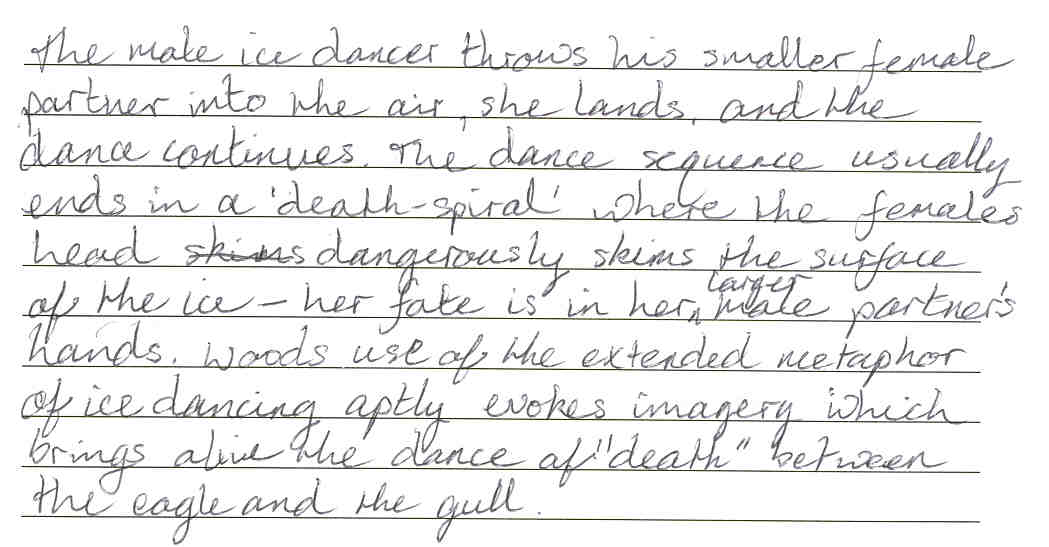 The male ice dancer throws his smaller female
partner into the air, she lands, and the
dance continues. The dance sequence usually
ends in a 'death-spiral' where the females
head skims dangerously skims the surface
of the ice – her fate is in her larger male partner's
hands. Woods use of the extended metaphor
of ice dancing aptly evokes imagery which
brings alive the dance of "death" between
the eagle and the gull.